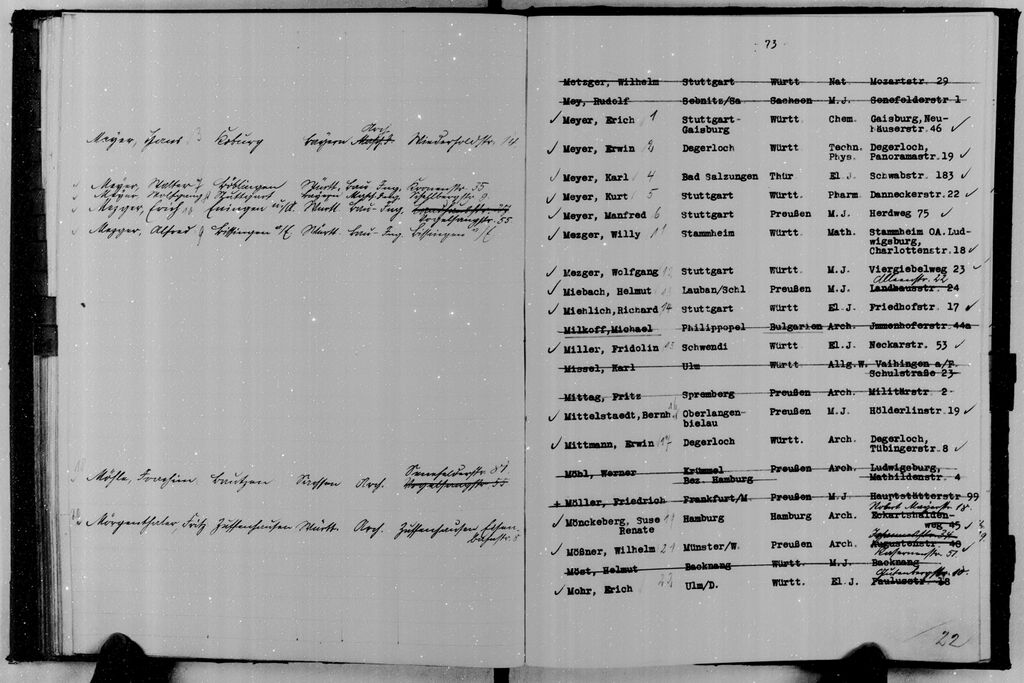 Meyer, Hans 3 Coburg Bayern Arch. Wiederholdstr. 14
Meyer, Walter 7 Böblingen Württ. Bau-Ing. Kronenstr. 55
Meyer, Wolfgang Stuttgart Bayern
Mezger, Erich Eningen u/A. Württ. Bau-Ing.
Vogelsangstr. 55
Mezger, Alfred 9 Bissingen a/E Württ. Bau-Ing. Bissingen a/E
Möhle, Joachim Bautzen Sachsen Arch. Senefelderstr. 81
Vogelsangstr. 55
Mörgenthaler, Fritz Zuffenhausen Württ. Arch. Zuffenhausen
73
Metzger, Wilhelm Stuttgart Württ Nat Mozartstr. 29
Mey, Rudolf Sebnitz/Sa Sachsen M.J. Senefelderstr 1
Meyer, Erich 1 Stuttgart- Württ Chem. Gaisburg, Neu-
Gaisburg häuserstr. 46
Meyer, Erwin 2 Degerloch Württ Techn. Degerloch,
Phys. Panoramastr. 19
Meyer, Karl 4 Bad Salzungen Thür El.J Schwabstr. 183
Meyer, Kurt 5 Stuttgart Württ. Pharm. Danneckerstr. 22
Meyer, Manfred 6 Stuttgart Preußen M.J. Herdweg 75
Mezger, Willy 11 Stammheim Württ. Math. Stammheim OA.Lud-
wigsburg,
Charlottenstr. 18
Mezger, Wolfgang 12 Stuttgart Württ. M.J. Viergiebelweg 23
Alleenstr. 22
Miebach, Helmut 13 Lauban/Schl Preußen M.J. Landhausstr. 24
Miehlich, Richard 14 Stuttgart Württ El.J Friedhofstr. 17
Milkoff, Michael Philippopel Bulgarien Arch. Jmmenhoferstr. 44a
Miller, Fridolin 15 Schwendi Württ El.J. Neckarstr. 53
Missel, Karl Ulm Württ Allg.W. Vaihingen a/F.
Schulstraße 23
Mittag, Fritz Spremberg Preußen Arch. Militärstr. 2
Mittelstaedt, Bernh. 16 Oberlangen- Preußen M.J. Hölderlinstr. 19
bielau
Mittmann, Erwin 17 Degerloch Württ. Arch. Degerloch,
Tübingerstr. 8
Möhl, Werner Krümmel Preußen Arch. Ludwigsburg,
Bez. Hamburg Mathildenstr. 4
+ Möller, Friedrich Frankfurt/M Preußen M.J Hauptstätterstr 99
Robert Mayerstr. 18.
Mönckeberg, Suse 19 Hamburg Hamburg Arch. Eckartshalden-
Renate weg 45
Mößner, Wilhelm 21 Münster/W. Preußen Arch. Augustenstr. 40
Kasernenstr. 51
Möst, Helmut Backnang Württ. M.J. Backnang
Gutenbergstr. 18.
Mohr, Erich 22 Ulm/D. Württ. El.J. Paulusstr. 18
22